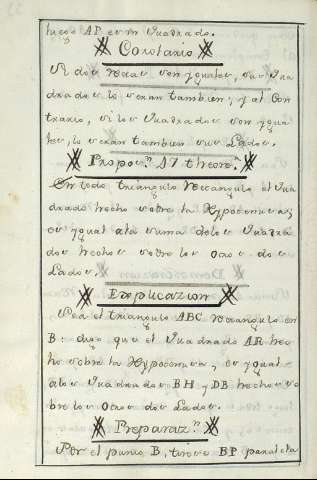 lueg๐ AP es un Quadrado.
Corolario
Si dos rectas son yguales, sus Qua
drados lo seran tambien; y al Con
trario, si los Quadrados son ygua
les, lo seran tambien sus Lados.
Propos.ⁿ 47 theor.ᵃ
En todo triangulo rectangulo el Qua
drado hecho sobre la Hypotenusa,
es ygual ala suma delos Quadra
dos hechos sobre los otros dos
Lados.
Explicazion
Sea el triangulo ABC rectangulo en
B: digo que el Quadrado AR hec
ho sobre la Hypotenusa, es ygual
alos Quadrados BH y DB hechos so
bre los otros dos Lados.
Preparaz.ⁿ
Por el punto B, tirese BP paralela